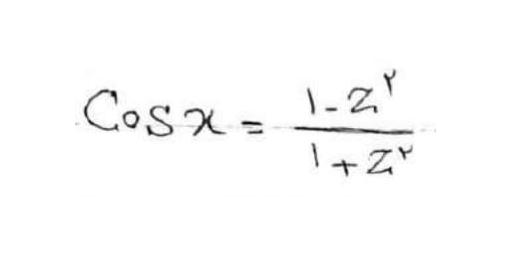 Cosx = (۱-z^۲)/(۱+z^۲)